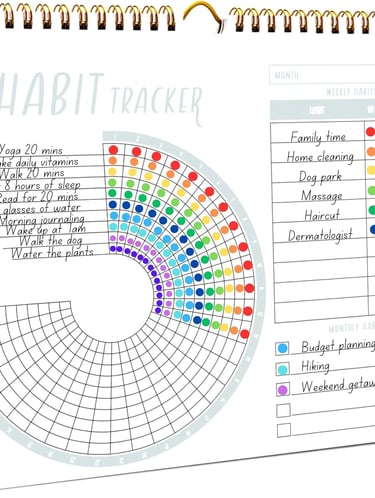 HABIT TRACKER
Yoga 20 mins
ke daily vitamins
Walk 20 mins
8 hours of sleep
ead for 20 mins
glasses of water
Morning journaling
Wake up at 1am
Walk the dog
Water the plants
MONTH:
WEEKLY HABITS
HABIT
Family time
Home cleaning
Dog park
Massage
Haircut
Dermatologist
MONTHLY
Budget planning
Hiking
Weekend getaw